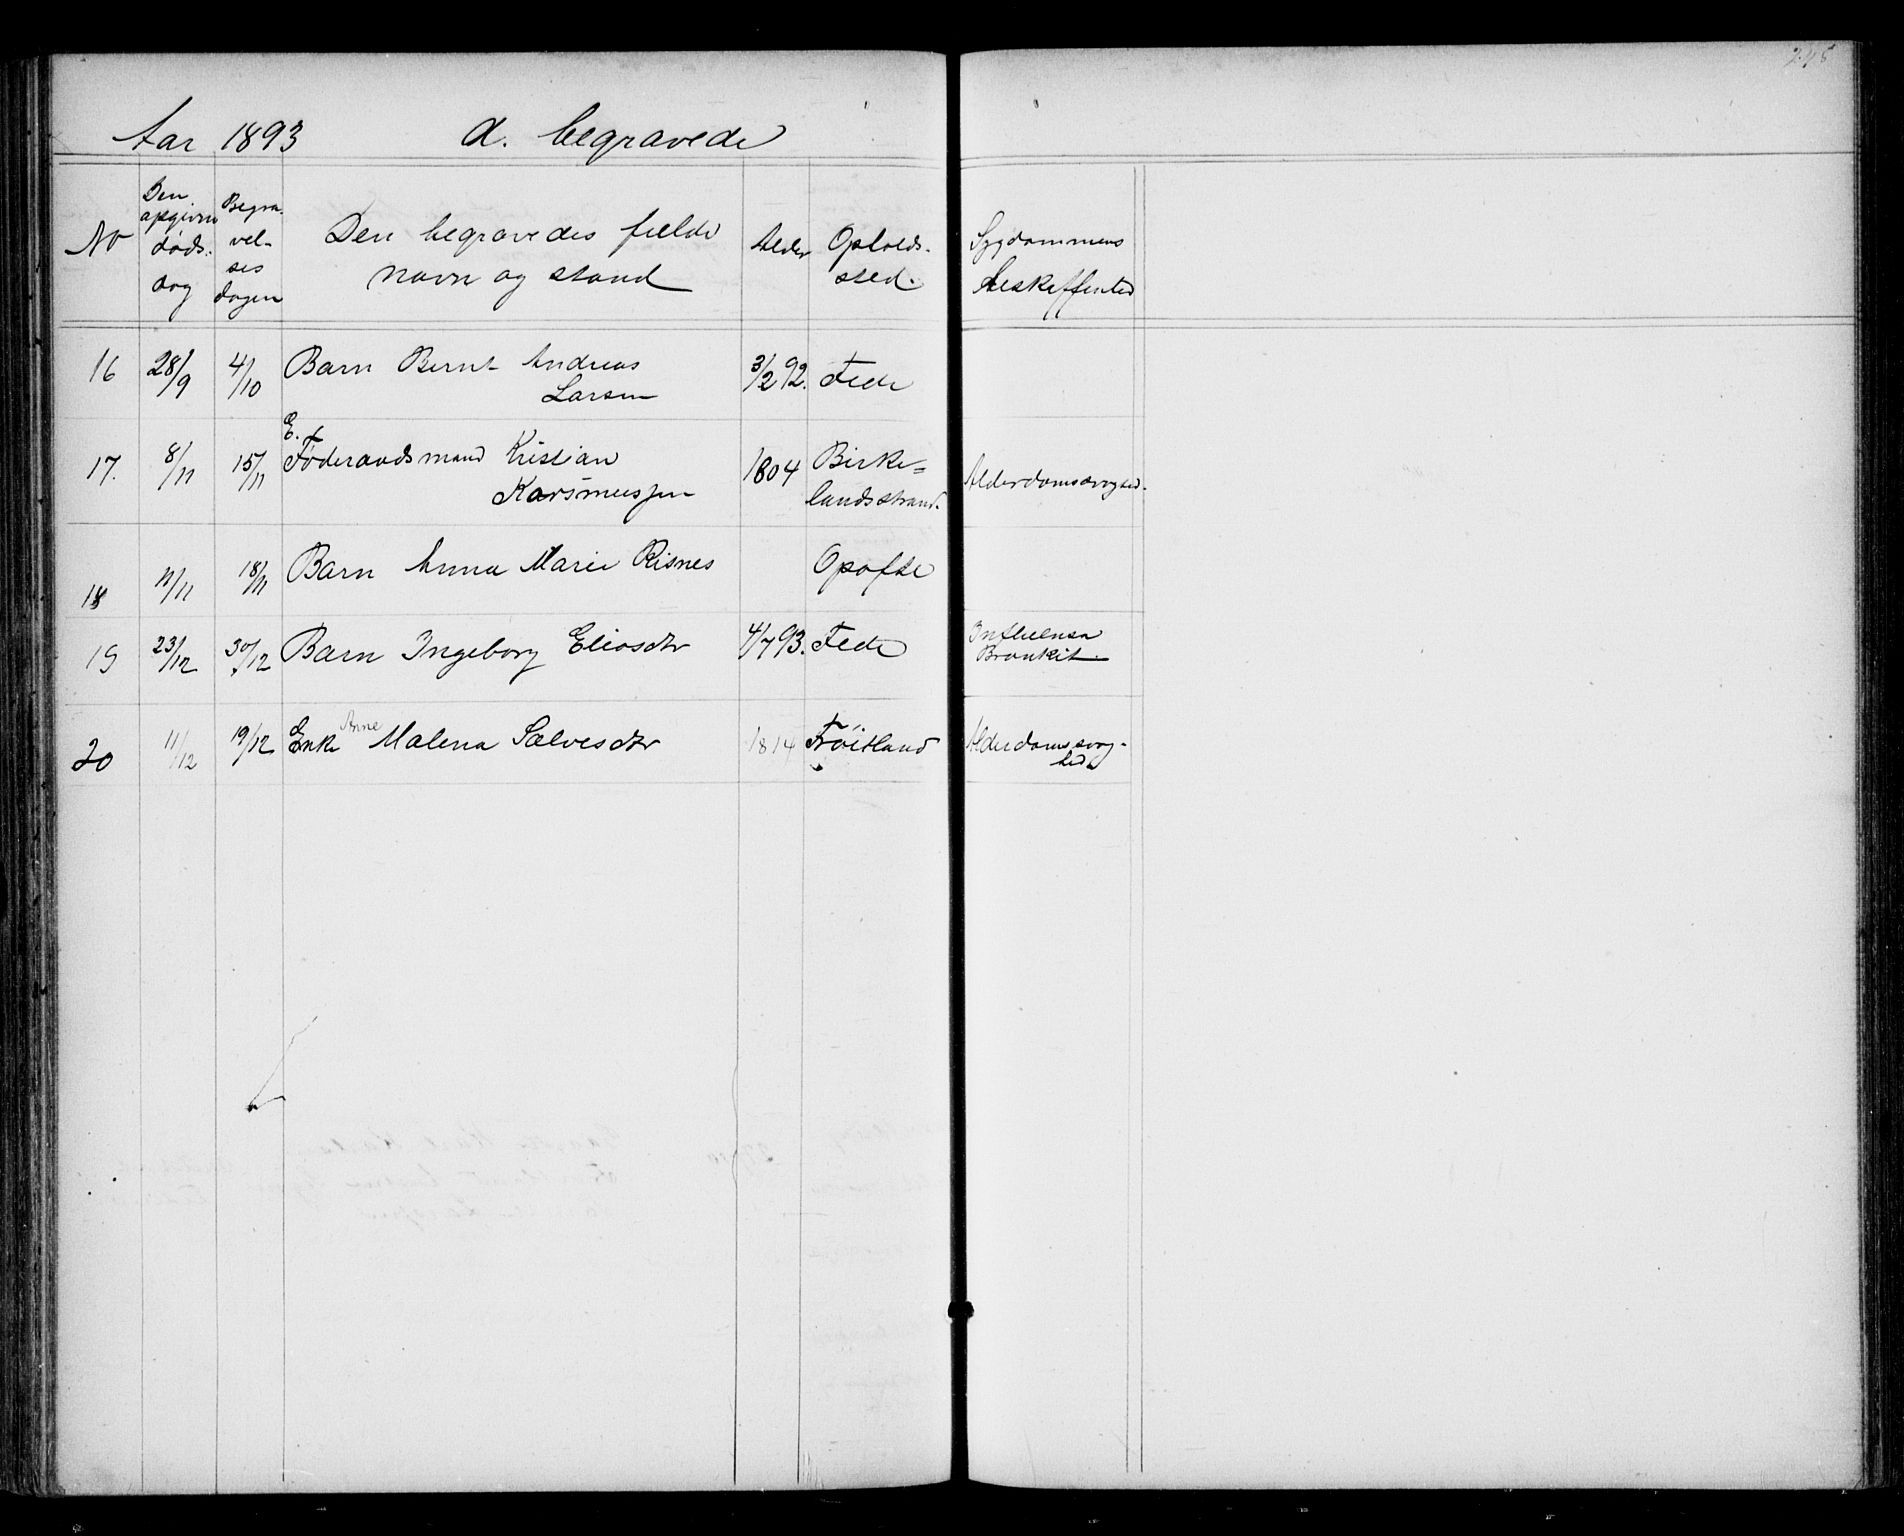 Aar 1893 d. begravede
No
Den
opgivne
døds-
dag
Begra-
vel-
ses
dagen
Den begravedes fulde
navn og stand
Alder
Opholds-
sted.
Sygdommens
Beskaffenhed
16 28/9 4/10 Barn Bernt Andreas
Larsen
3/2 92. Fede
17. 8/11 15/11 E.
Føderaadsmand Kristian
Rasmussen
1804 Birke=
landsstrand.
Alderdomssvaghed.
18 11/11 18/11 Barn Anna Marie Risnes Opofte
19 23/12 30/12 Barn Ingeborg Eliasdtr 4/7 93. Fede Influensa
Bronkit.
20 11/12 19/12 Enke Anne Malena Salvesdtr 1814 Frøitland Alderdomssvag-
hed